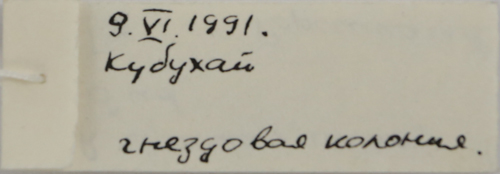 9.VI.1991.
Кубухай
гнездовая колония.